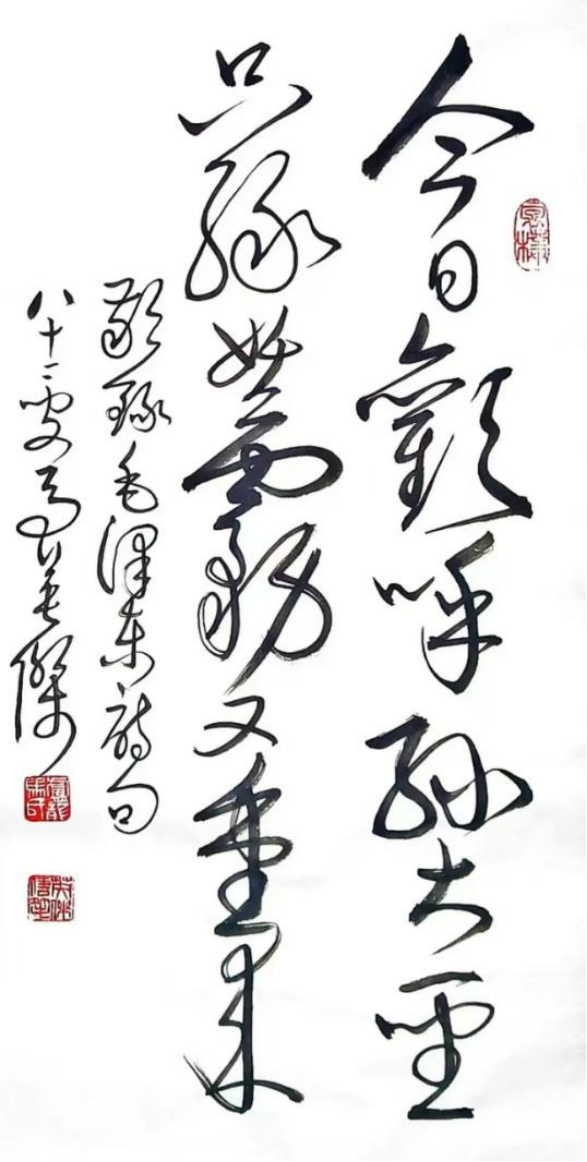 今日歡呼孫大聖
只緣妖霧又重來
敬錄毛澤东詩句
八十二叟馬英傑